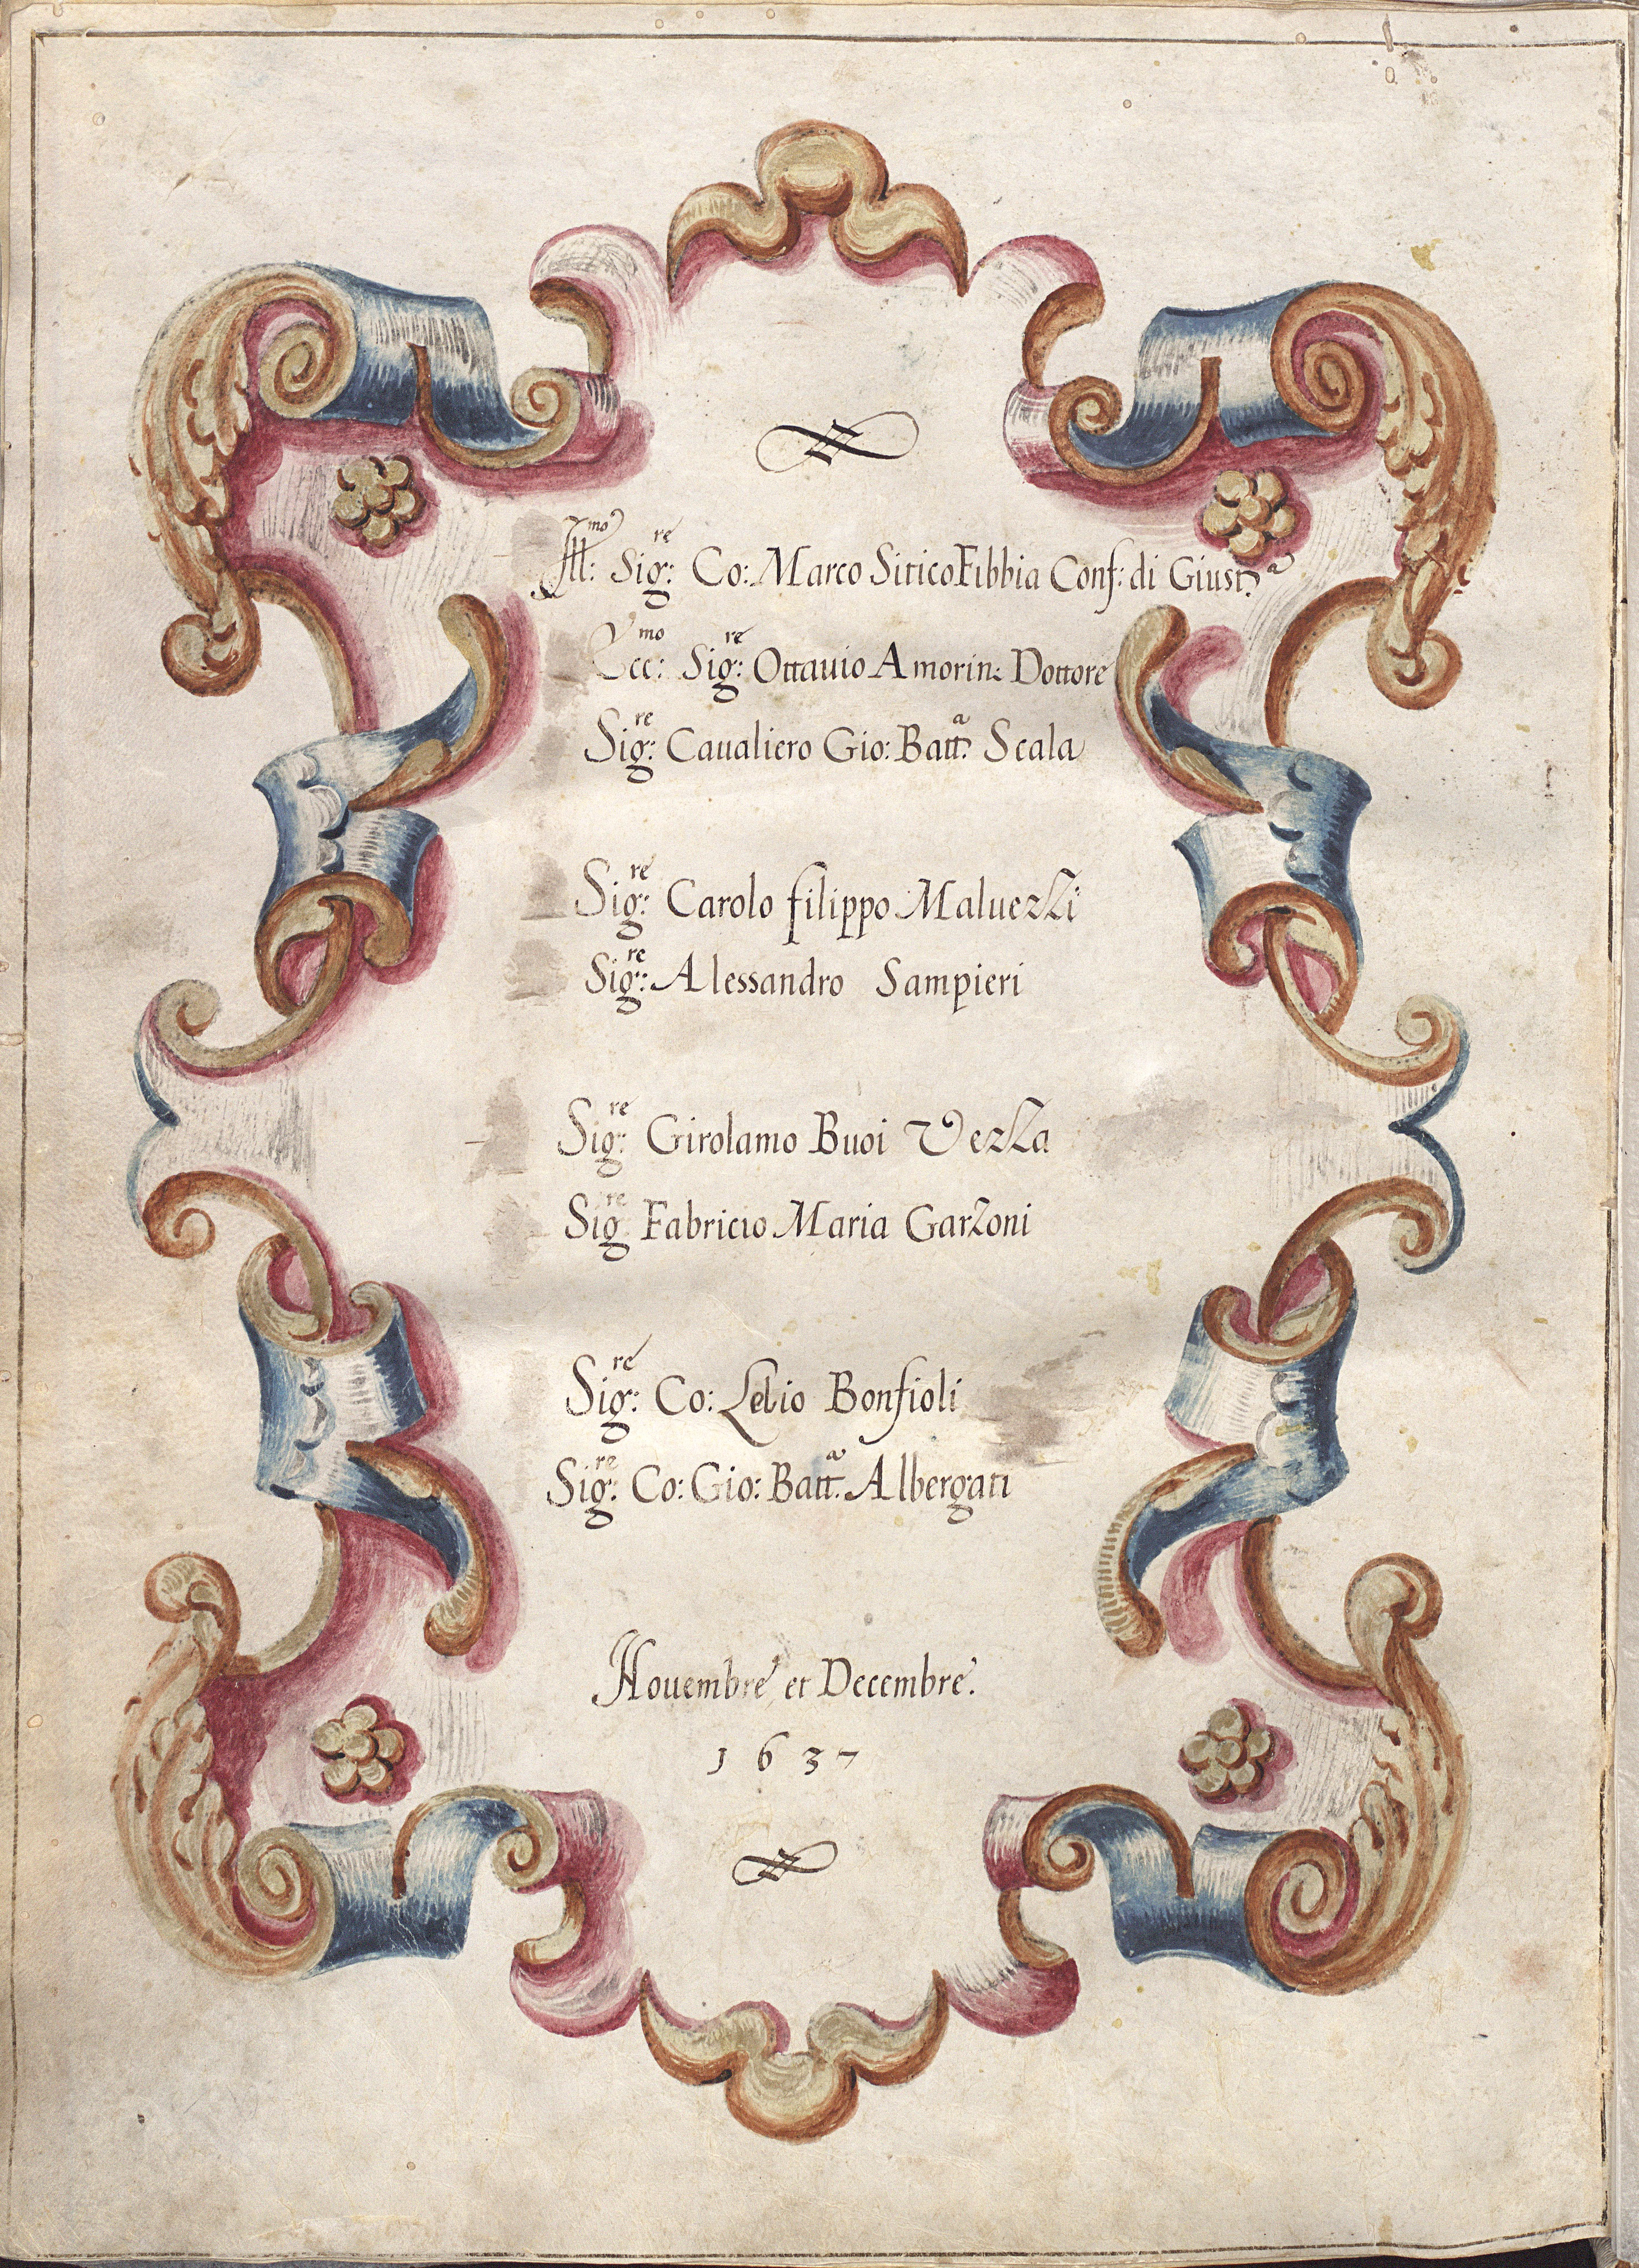 Ill:mo Sig:re Co: Marco Sitico Fibbia Conf: di Giust.a
Ecc:mo Sig:re Ottauio Amorin: Dottore
Sig:re Caualiero Gio: Batt.a Scala
Sig:re Carolo filippo Maluezzi
Sig:re Alessandro Sampieri
Sig:re Girolamo Buoi Vezza
Sig:re Fabricio Maria Garzoni
Sig:re Co: Lelio Bonfioli
Sig:re Co: Gio: Batt.a Albergati
Nouembre et Decembre.
1637